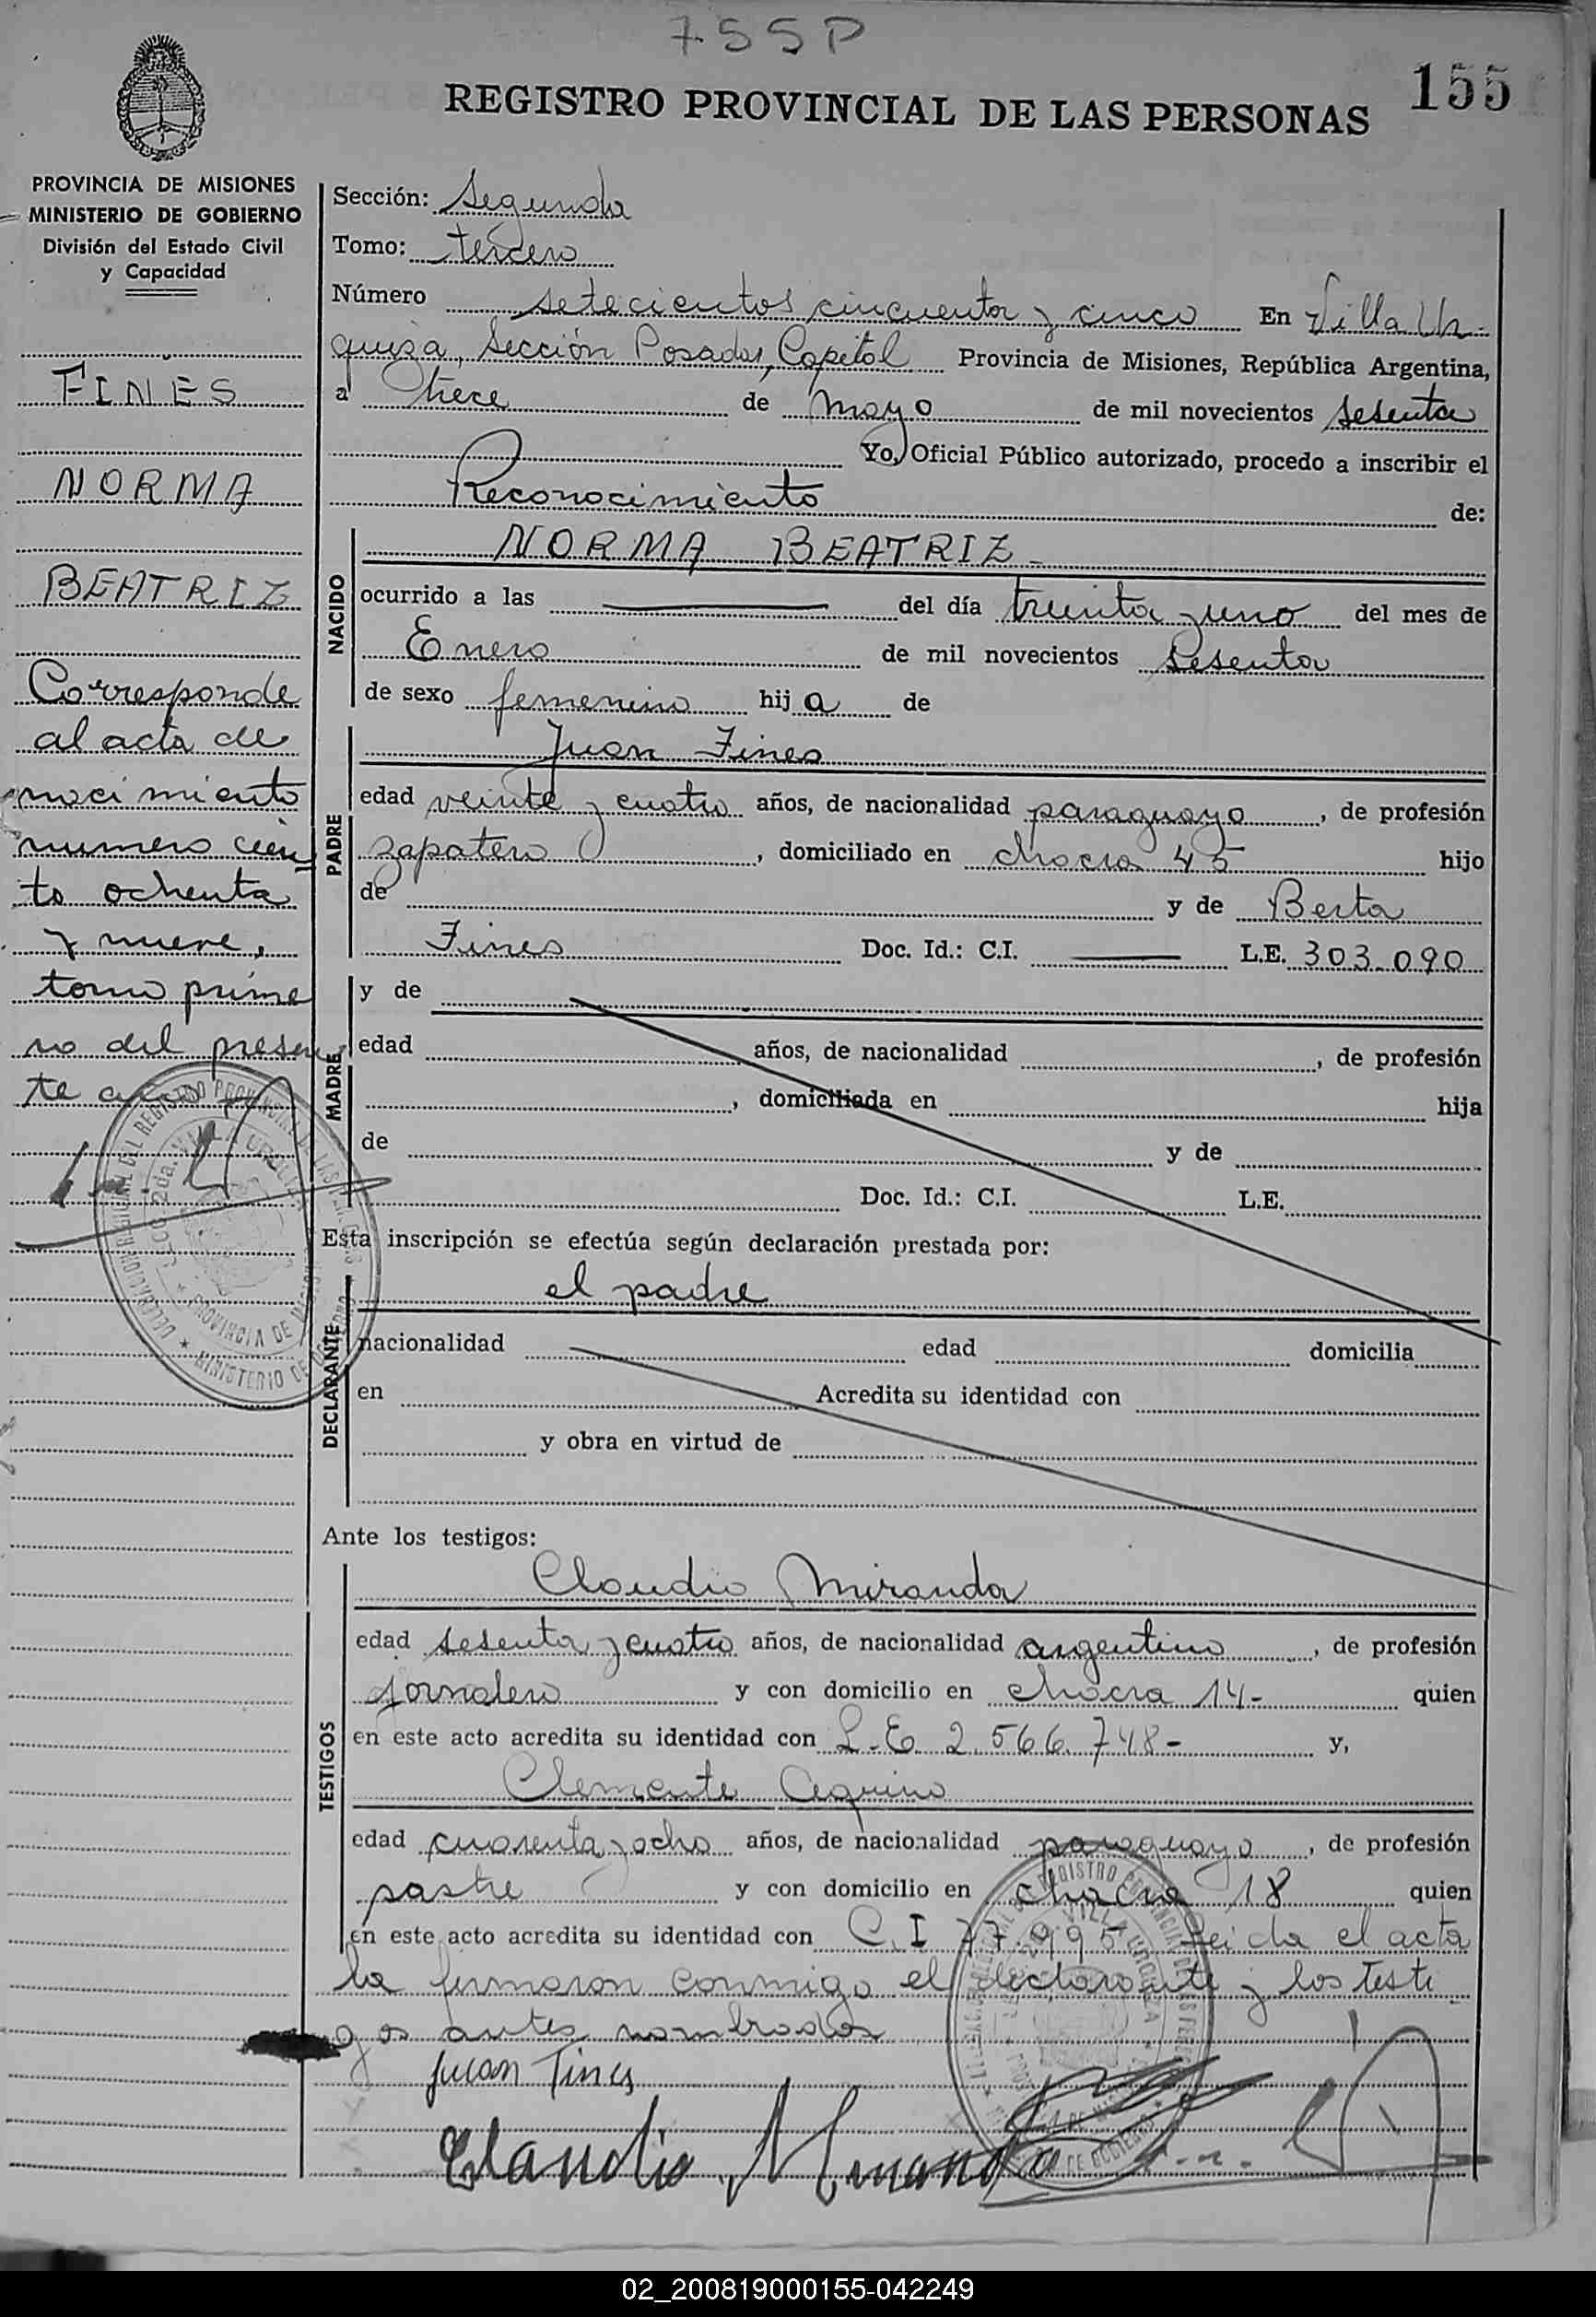 755P
155
REGISTRO PROVINCIAL DE LAS PERSONAS
PROVINCIA DE MISIONES
MINISTERIO DE GOBIERNO
División del Estado Civil
y Capacidad
FINES
NORMA
BEATRIZ
Corresponde
al acta de
nacimiento
numero cien
to ochenta
y nueve,
tomo prime
ro del presen
te año
Sección: Segunda
Tomo: tercero
Número setecientos cincuenta y cinco En Villa Ur
quiza, Sección Posadas, Capital Provincia de Misiones, República Argentina,
a trece de mayo de mil novecientos sesenta
Yo, Oficial Público autorizado, procedo a inscribir el
Reconocimiento de:
NACIDO
NORMA BEATRIZ
ocurrido a las del día treinta y uno del mes de
Enero de mil novecientos sesenta
de sexo femenino hija de
PADRE
Juan Fines
edad veinte y cuatro años, de nacionalidad paraguayo, de profesión
zapatero, domiciliado en chacra 45 hijo
de y de Berta
Fines Doc. Id.: C.I. L.E. 303.090
MADRE
y de
edad años, de nacionalidad , de profesión
, domiciliada en hija
de y de
Doc. Id.: C.I. L.E.
Esta inscripción se efectúa según declaración prestada por:
DECLARANTE
el padre
nacionalidad edad domicilia
en Acredita su identidad con
y obra en virtud de
Ante los testigos:
TESTIGOS
Claudio Miranda
edad sesenta y cuatro años, de nacionalidad argentino, de profesión
jornalero y con domicilio en chacra 14- quien
en este acto acredita su identidad con L.E 2.566.748- y,
Clemente Aquino
edad cuarenta y ocho años, de nacionalidad paraguayo, de profesión
sastre y con domicilio en chacra 18 quien
en este acto acredita su identidad con C.I 77.995 Leida el acta
la firmaron conmigo el declarante y los testi
gos antes nombrados
Juan Fines
Claudio Miranda
02_200819000155-042249